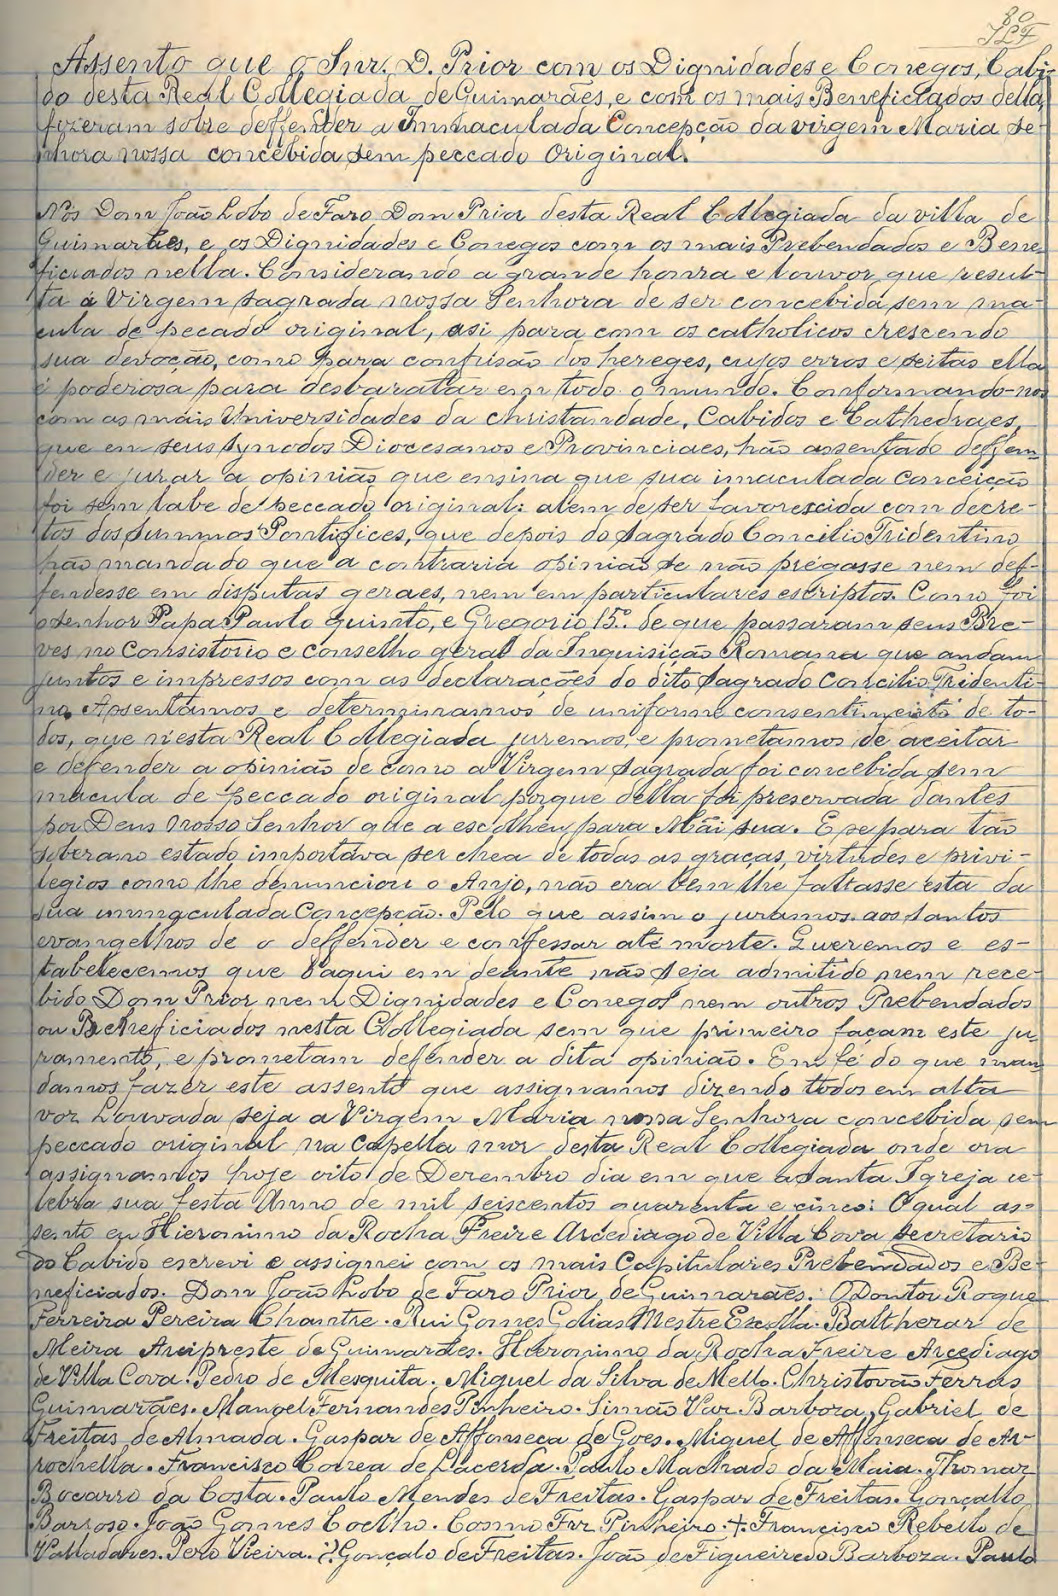 80
Assento que o Snr. D. Prior com os Dignidades e Conegos, Cabi-
do desta Real Collegiada de Guimarães, e com os mais Beneficiados della,
fizeram sobre deffender a Immaculada Concepção da virgem Maria se-
nhora nossa concebida sem peccado Original.
Nós Dom João Lobo de Faro Dom Prior desta Real Collegiada da villa de
Guimarães, e os Dignidades e Conegos com os mais Prebendados e Bene-
ficiados nella. Considerando a grande honra e louvor que resul-
ta á Virgem sagrada nossa Senhora de ser concebida sem ma-
cula de pecado original, asi para com os catholicos crescendo
sua devoção, como para confusão dos hereges, cujos erros e seitas ella
é poderosa para desbaratar em todo o mundo. Conformando-nos
com as mais Universidades da christandade, Cabidos e Cathedraes,
que em seus synodos Diocesanos e Provinciaes, hão assentado deffen-
der e jurar a opinião que ensina que sua imaculada Conceição
foi sem labe de peccado original: alem de ser favorescida com decre-
tos dos summos Pontifices, que depois do sagrado Concilio Tridentino
hão mandado que a contraria opinião se não prégasse nem def-
fendesse em disputas geraes, nem em particulares escriptos. Como foi
o senhor Papa Paulo quinto, e Gregorio 15.º de que passaram seus Bre-
ves no Consistorio e conselho geral da Inquisição Romana que andam
juntos e impressos com as declarações do dito sagrado Concilio Tridenti-
no. Assentamos e determinamos de uniforme consentimento de to-
dos, que n'esta Real Collegiada juremos, e prometamos de aceitar
e defender a opinião de como a Virgem sagrada foi concebida sem
macula de peccado original porque della foi preservada dantes
por Deus Nosso Senhor que a escolheu para Mãi sua. E se para tão
soberano estado importava ser chea de todas as graças, virtudes e privi-
legios como lhe denunciou o Anjo, não era bem lhe faltasse esta da
sua immaculada Concepção. Pelo que assim o juramos aos santos
evangelhos de o deffender e confessar até morte. Queremos e es-
tabelecemos que d'aqui em deante não seja admitido nem rece-
bido Dom Prior nem Dignidades e Conegos nem outros Prebendados
ou Beneficiados nesta Collegiada sem que primeiro façam este ju-
ramento, e prometam defender a dita opinião. Em fé do que man-
damos fazer este assento que assignamos dizendo todos em alta
voz Louvada seja a Virgem Maria nossa Senhora concebida sem
peccado original na Capella mor desta Real Collegiada onde ora
assignamos hoje oito de Dezembro dia em que a Santa Igreja ce-
lebra sua festa Anno de mil seiscentos quarenta e cinco: O qual as-
sento eu Hieronimo da Rocha Freire Arcediago de Villa Cova secretario
do Cabido escrevi e assignei com os mais Capitulares Prebendados e Be-
neficiados. Dom João Lobo de Faro Prior de Guimarães. O Doutor Roque
Ferreira Pereira Chantre. Rui Gomes Golias Mestre Escolla. Balthezar de
Meira Arcipreste de Guimarães. Hieronimo da Rocha Freire Arcediago
de Villa Cova. Pedro de Mesquita. Miguel da Silva de Mello. Christovão Ferras
Guimarães. Manoel Fernandes Pinheiro. Simão Vaz Barboza, Gabriel de
Freitas de Almada. Gaspar de Affonseca de Goes. Miguel de Affonseca de Ar-
rochella. Francisco Correa de Lacerda. Paulo Machado da Maia. Thomaz
Bocarro da Costa. Paulo Mendes de Freitas. Gaspar de Freitas. Gonçallo
Barroso. João Gomes Coelho. Cosmo Frz Pinheiro. +. Francisco Rebello de
Valladares. Pero Vieira. ?. Gonçalo de Freitas. João de Figueiredo Barboza. Paulo